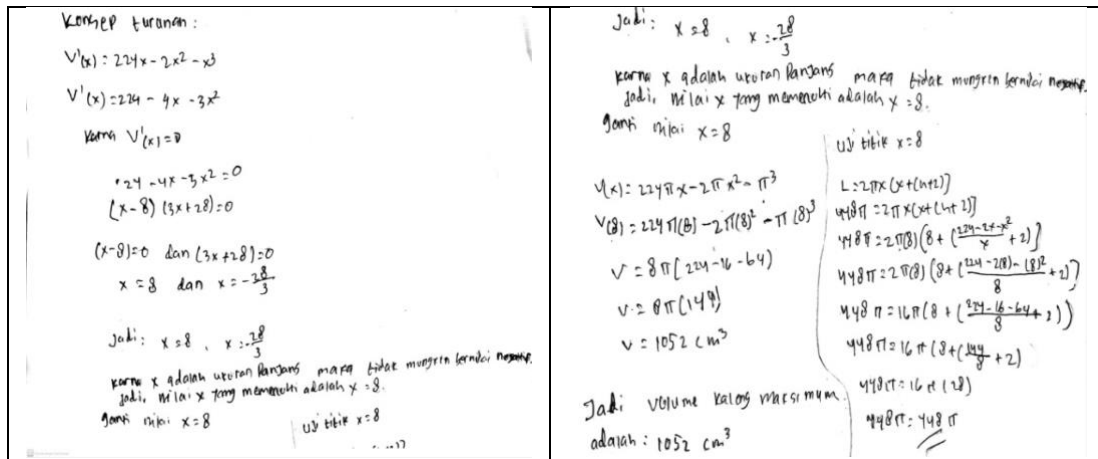 Konsep turunan :
V'(x) = 224x - 2x² - x³
V'(x) = 224 - 4x - 3x²
karna V'(x) = 0
224 - 4x - 3x² = 0
(x-8) (3x+28) = 0
(x-8)=0 dan (3x+28)=0
x = 8 dan x = -28/3
Jadi : x = 8 , x = -28/3
karna x adalah ukuran Panjang maka tidak mungkin bernilai negatif.
jadi, nilai x yang memenuhi adalah x = 8.
ganti nilai x = 8
Uji titik x = 8
Jadi : x = 8 , x = -28/3
karna x adalah ukuran Panjang maka tidak mungkin bernilai negatif.
jadi, nilai x yang memenuhi adalah x = 8.
ganti nilai x = 8
V(x) = 224πx - 2πx² - π³
V(8) = 224π(8) - 2π(8)² - π(8)³
V = 8π(224 - 16 - 64)
V = 8π(144)
V = 1052 cm³
Jadi volume kaleng maksimum
adalah : 1052 cm³
Uji titik x = 8
L = 2πx(x+(h+2))
448π = 2πx(x+(h+2))
448π = 2π(8)(8+((224-2x-x²)/x+2))
448π = 2π(8)(8+((224-2(8)-(8)²)/8+2))
448π = 16π(8+((224-16-64)/8+2))
448π = 16π(8+(144/8+2))
448π = 16π(28)
448π = 448π